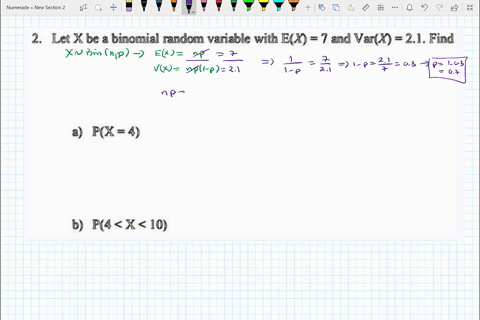 Numerade » New Section 2
2. Let X be a binomial random variable with E(X) = 7 and Var(X) = 2.1. Find
X~Bin(n,p) → E(X) = np = 7
V(X) = np(1-p) = 2.1
⇒ 1/1-p = 7/2.1 ⇒ 1-p = 2.1/7 = 0.3 → p = 1-0.3
= 0.7
np =
a) P(X = 4)
b) P(4 < X < 10)